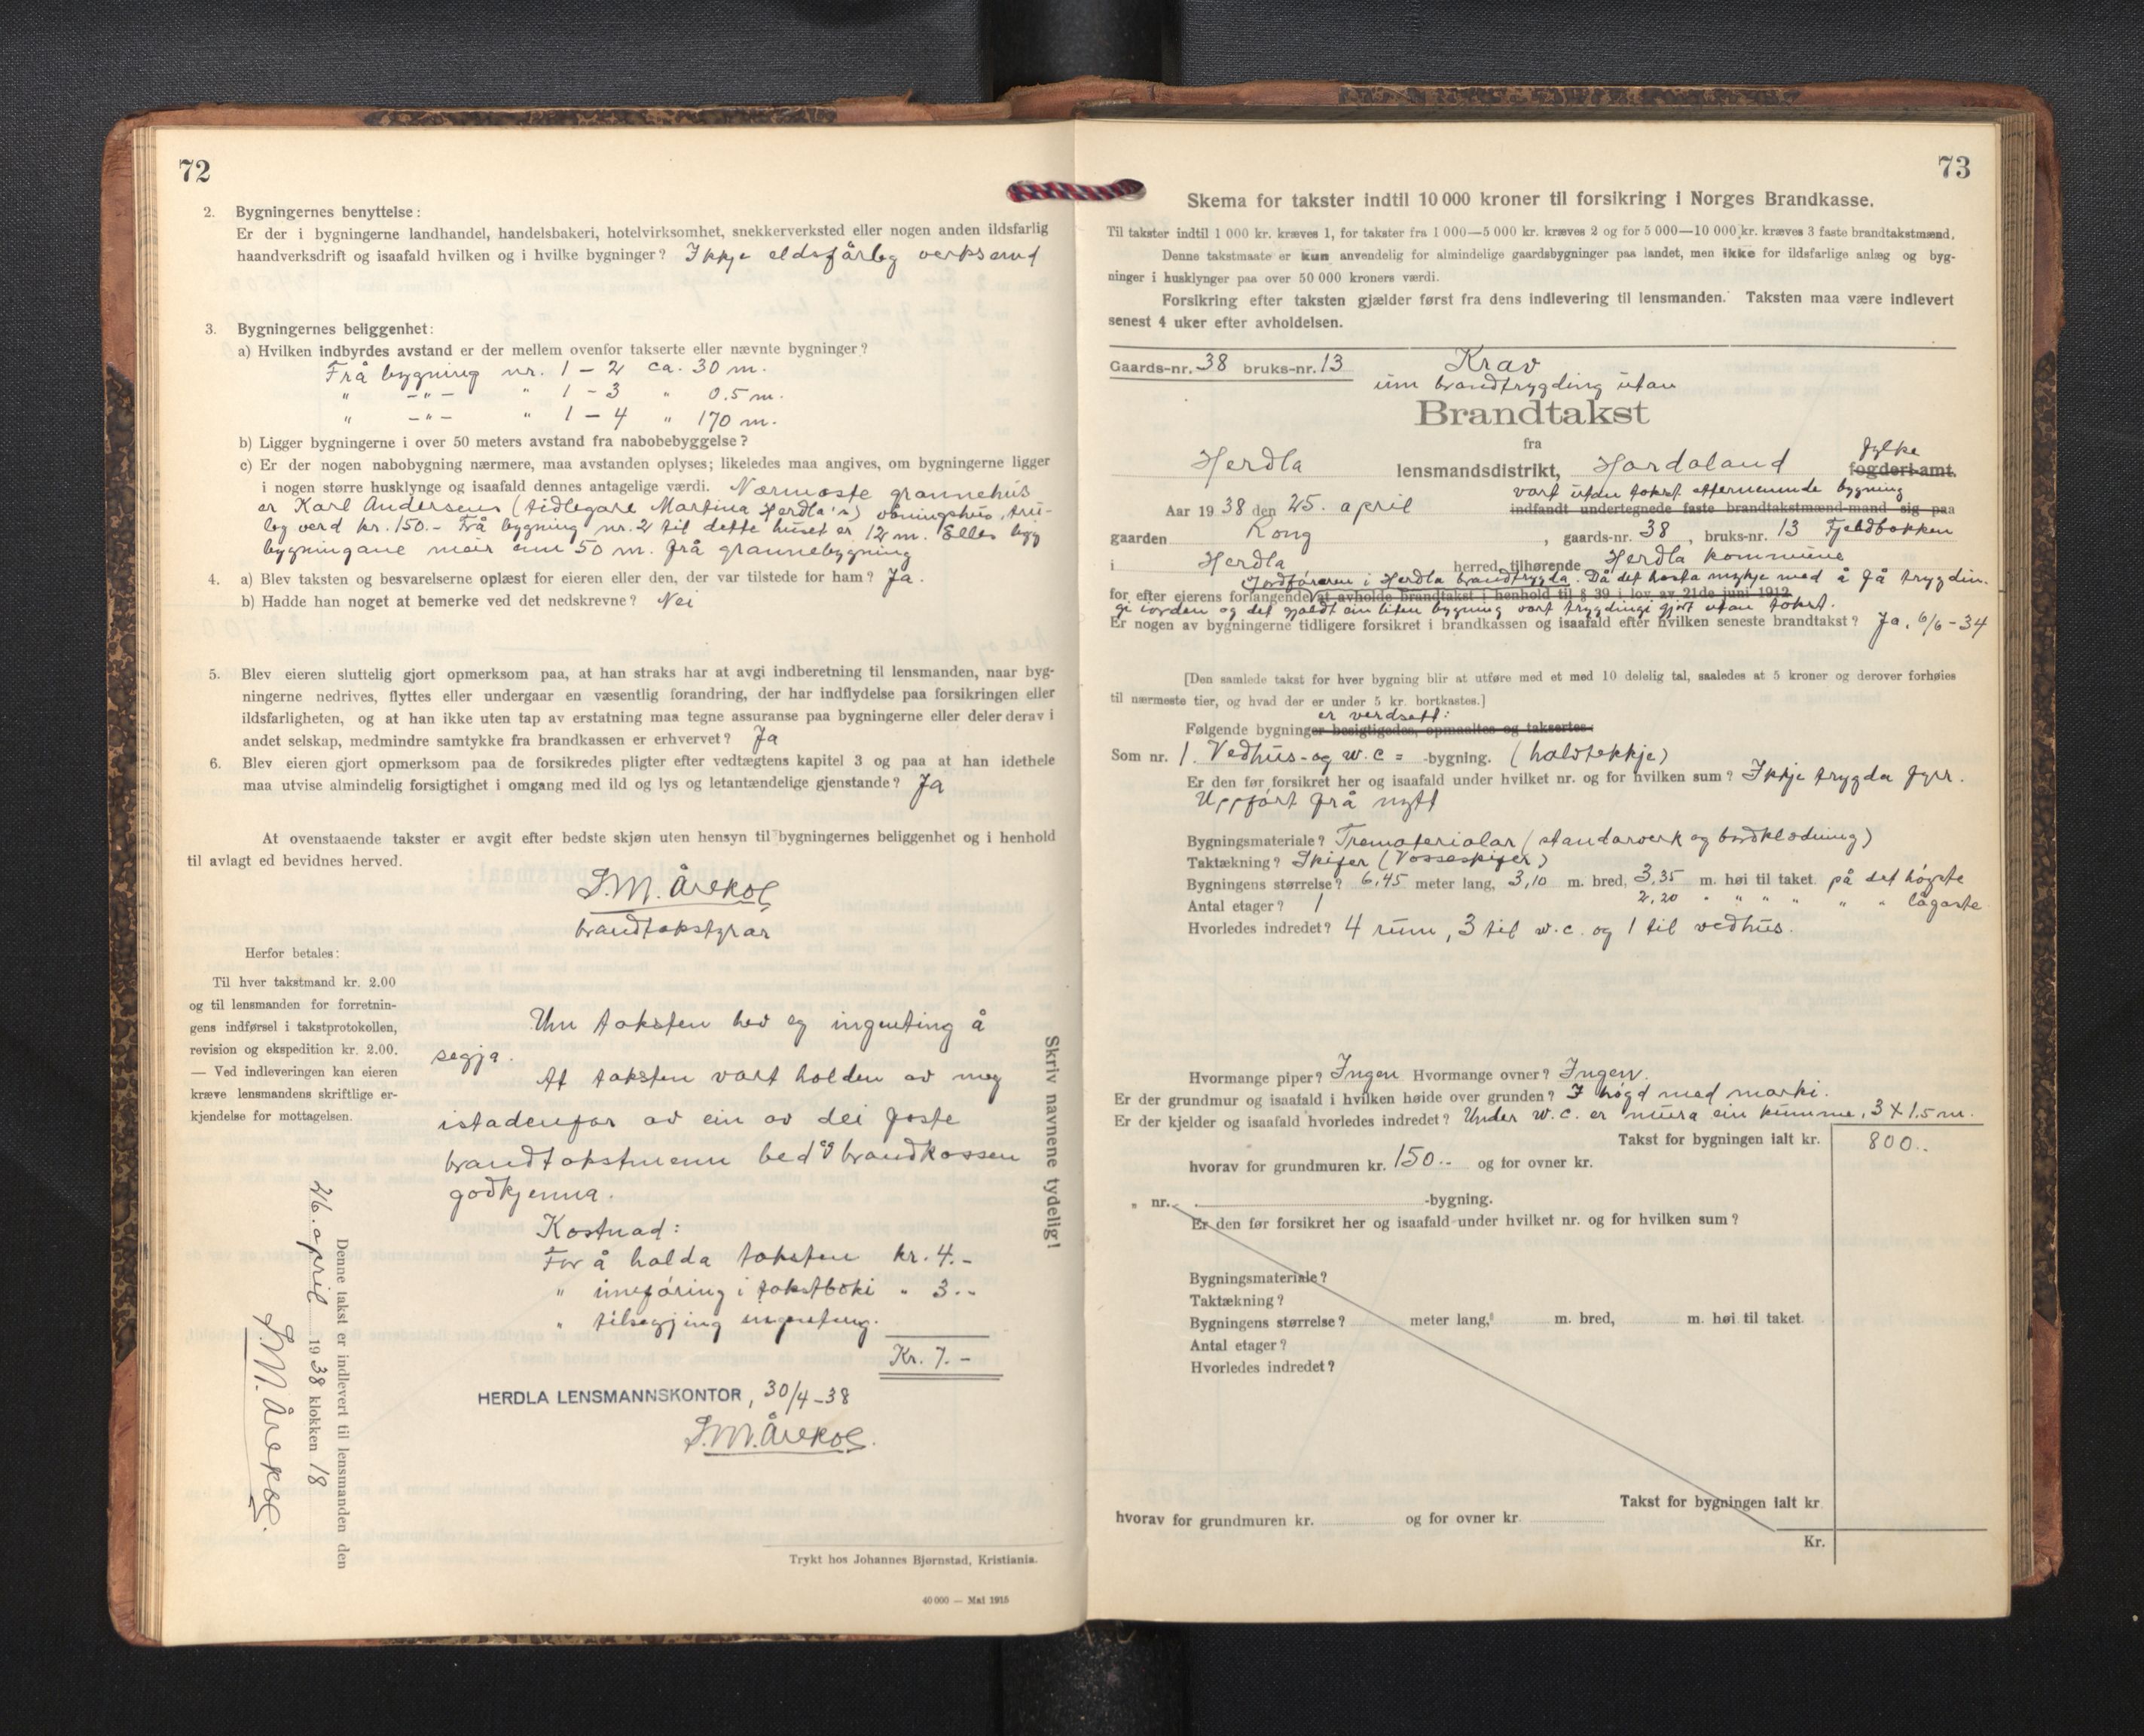 72
2. Bygningernes benyttelse:
Er der i bygningerne landhandel, handelsbakeri, hotelvirksomhet, snekkerverksted eller nogen anden ildsfarlig
haandverksdrift og isaafald hvilken og i hvilke bygninger? Ikkje eldsfårleg verksemd
3. Bygningernes beliggenhet:
a) Hvilken indbyrdes avstand er der mellem ovenfor takserte eller nævnte bygninger?
Frå bygning nr. 1 – 2 ca. 30 m.
" –"– " 1 – 3 " 0.5 m.
" –"– " 1 – 4 " 170 m.
b) Ligger bygningerne i over 50 meters avstand fra nabobebyggelse?
c) Er der nogen nabobygning nærmere, maa avstanden oplyses; likeledes maa angives, om bygningerne ligger
i nogen større husklynge og isaafald dennes antagelige værdi. Nærmaste grannehus
er Karl Andersens (tidlegare Martina Herdla's) våningshus, tru-
leg verd kr. 150.- Frå bygning nr. 2 til dette huset er 12 m. Elles ligg
bygningane meir enn 50 m. frå grannebygning
4. a) Blev taksten og besvarelserne oplæst for eieren eller den, der var tilstede for ham? Ja.
b) Hadde han noget at bemerke ved det nedskrevne? Nei
5. Blev eieren sluttelig gjort opmerksom paa, at han straks har at avgi indberetning til lensmanden, naar byg-
ningerne nedrives, flyttes eller undergaar en væsentlig forandring, der har indflydelse paa forsikringen eller
ildsfarligheten, og at han ikke uten tap av erstatning maa tegne assuranse paa bygningerne eller deler derav i
andet selskap, medmindre samtykke fra brandkassen er erhvervet? Ja
6. Blev eieren gjort opmerksom paa de forsikredes pligter efter vedtægtens kapitel 3 og paa at han idethele
maa utvise almindelig forsigtighet i omgang med ild og lys og letantændelige gjenstande? Ja
At ovenstaaende takster er avgit efter bedste skjøn uten hensyn til bygningernes beliggenhet og i henhold
til avlagt ed bevidnes herved.
S.M. Åreskog
brandtakstyrar
Herfor betales:
Til hver takstmand kr. 2.00
og til lensmanden for forretnin-
gens indførsel i takstprotokollen,
revision og ekspedition kr. 2.00.
— Ved indleveringen kan eieren
kræve lensmandens skriftlige er-
kjendelse for mottagelsen.
Um taksten hev eg ingenting å
segja.
At taksten vart halden av meg
istadenfor av ein av dei faste
brandtakstmenn bed eg brandkassen
godkjenna.
Kostnad:
For å halda taksten kr. 4.-
" innføring i takstboki " 3.-
" tilsegjing ingenting.
Kr. 7.-
HERDLA LENSMANNSKONTOR, 30/4-38
S.M. Åreskog.
Skriv navnene tydelig!
Denne takst er indlevert til lensmanden den
26. april 1938 klokken 18
S.M. Åreskog.
Trykt hos Johannes Bjørnstad, Kristiania.
40 000 — Mai 1915
73
Skema for takster indtil 10 000 kroner til forsikring i Norges Brandkasse.
Til takster indtil 1 000 kr. kræves 1, for takster fra 1 000—5 000 kr. kræves 2 og for 5 000—10 000 kr. kræves 3 faste brandtakstmænd.
Denne takstmaate er kun anvendelig for almindelige gaardsbygninger paa landet, men ikke for ildsfarlige anlæg og byg-
ninger i husklynger paa over 50 000 kroners værdi.
Forsikring efter taksten gjælder først fra dens indlevering til lensmanden. Taksten maa være indlevert
senest 4 uker efter avholdelsen.
Gaards-nr. 38 bruks-nr. 13 Krav
um brandtrygding utan
Brandtakst
fra
Herdla lensmandsdistrikt, Hordaland fylke fogderi-amt.
vart utan takst etternemnde bygning
Aar 1938 den 25. april indfandt undertegnede faste brandtakstmænd-mand sig paa
gaarden Rong, gaards-nr. 38, bruks-nr. 13 Fjeldbakken
i Herdla herred, tilhørende Herdla kommune
Jordføraren i Herdla brandtrygda. Då det hasta mykje med å få trygdin-
for efter eierens forlangende at avholde brandtakst i henhold til § 39 i lov av 21de juni 1912
gi iorden og det gjaldt ein liten bygning vart trygdingi gjort utan takst.
Er nogen av bygningerne tidligere forsikret i brandkassen og isaafald efter hvilken seneste brandtakst? Ja, 6/6-34
[Den samlede takst for hver bygning blir at utføre med et med 10 delelig tal, saaledes at 5 kroner og derover forhøies
til nærmeste tier, og hvad der er under 5 kr. bortkastes.]
er verdsett:
Følgende bygninger besigtigedes, opmaaltes og taksertes:
Som nr. 1. Vedhus- og w.c = -bygning. (halvtekkje)
Er den før forsikret her og isaafald under hvilket nr. og for hvilken sum? Ikkje trygda fyrr.
Uppført frå nytt
Bygningsmateriale? Trematerialar (standarverk og bordklædning)
Taktækning? Skifer (Vosseskifer)
Bygningens størrelse? 6,45 meter lang, 3,10 m. bred, 3,35 m. høi til taket på det høgste
2,20 " " " " " " lågaste
Antal etager? 1
Hvorledes indredet? 4 rum, 3 til w.c. og 1 til vedhus.
Hvormange piper? Ingen Hvormange ovner? Ingen.
Er der grundmur og isaafald i hvilken høide over grunden? I høgd med marki.
Er der kjelder og isaafald hvorledes indredet? Under w.c. er mura ein kumme, 3 X 1.5 m.
Takst for bygningen ialt kr. 800..
hvorav for grundmuren kr. 150.. og for ovner kr.
" nr. -bygning.
Er den før forsikret her og isaafald under hvilket nr. og for hvilken sum?
Bygningsmateriale?
Taktækning?
Bygningens størrelse? meter lang, m. bred, m. høi til taket.
Antal etager?
Hvorledes indredet?
Takst for bygningen ialt kr.
hvorav for grundmuren kr. og for ovner kr.
Kr.